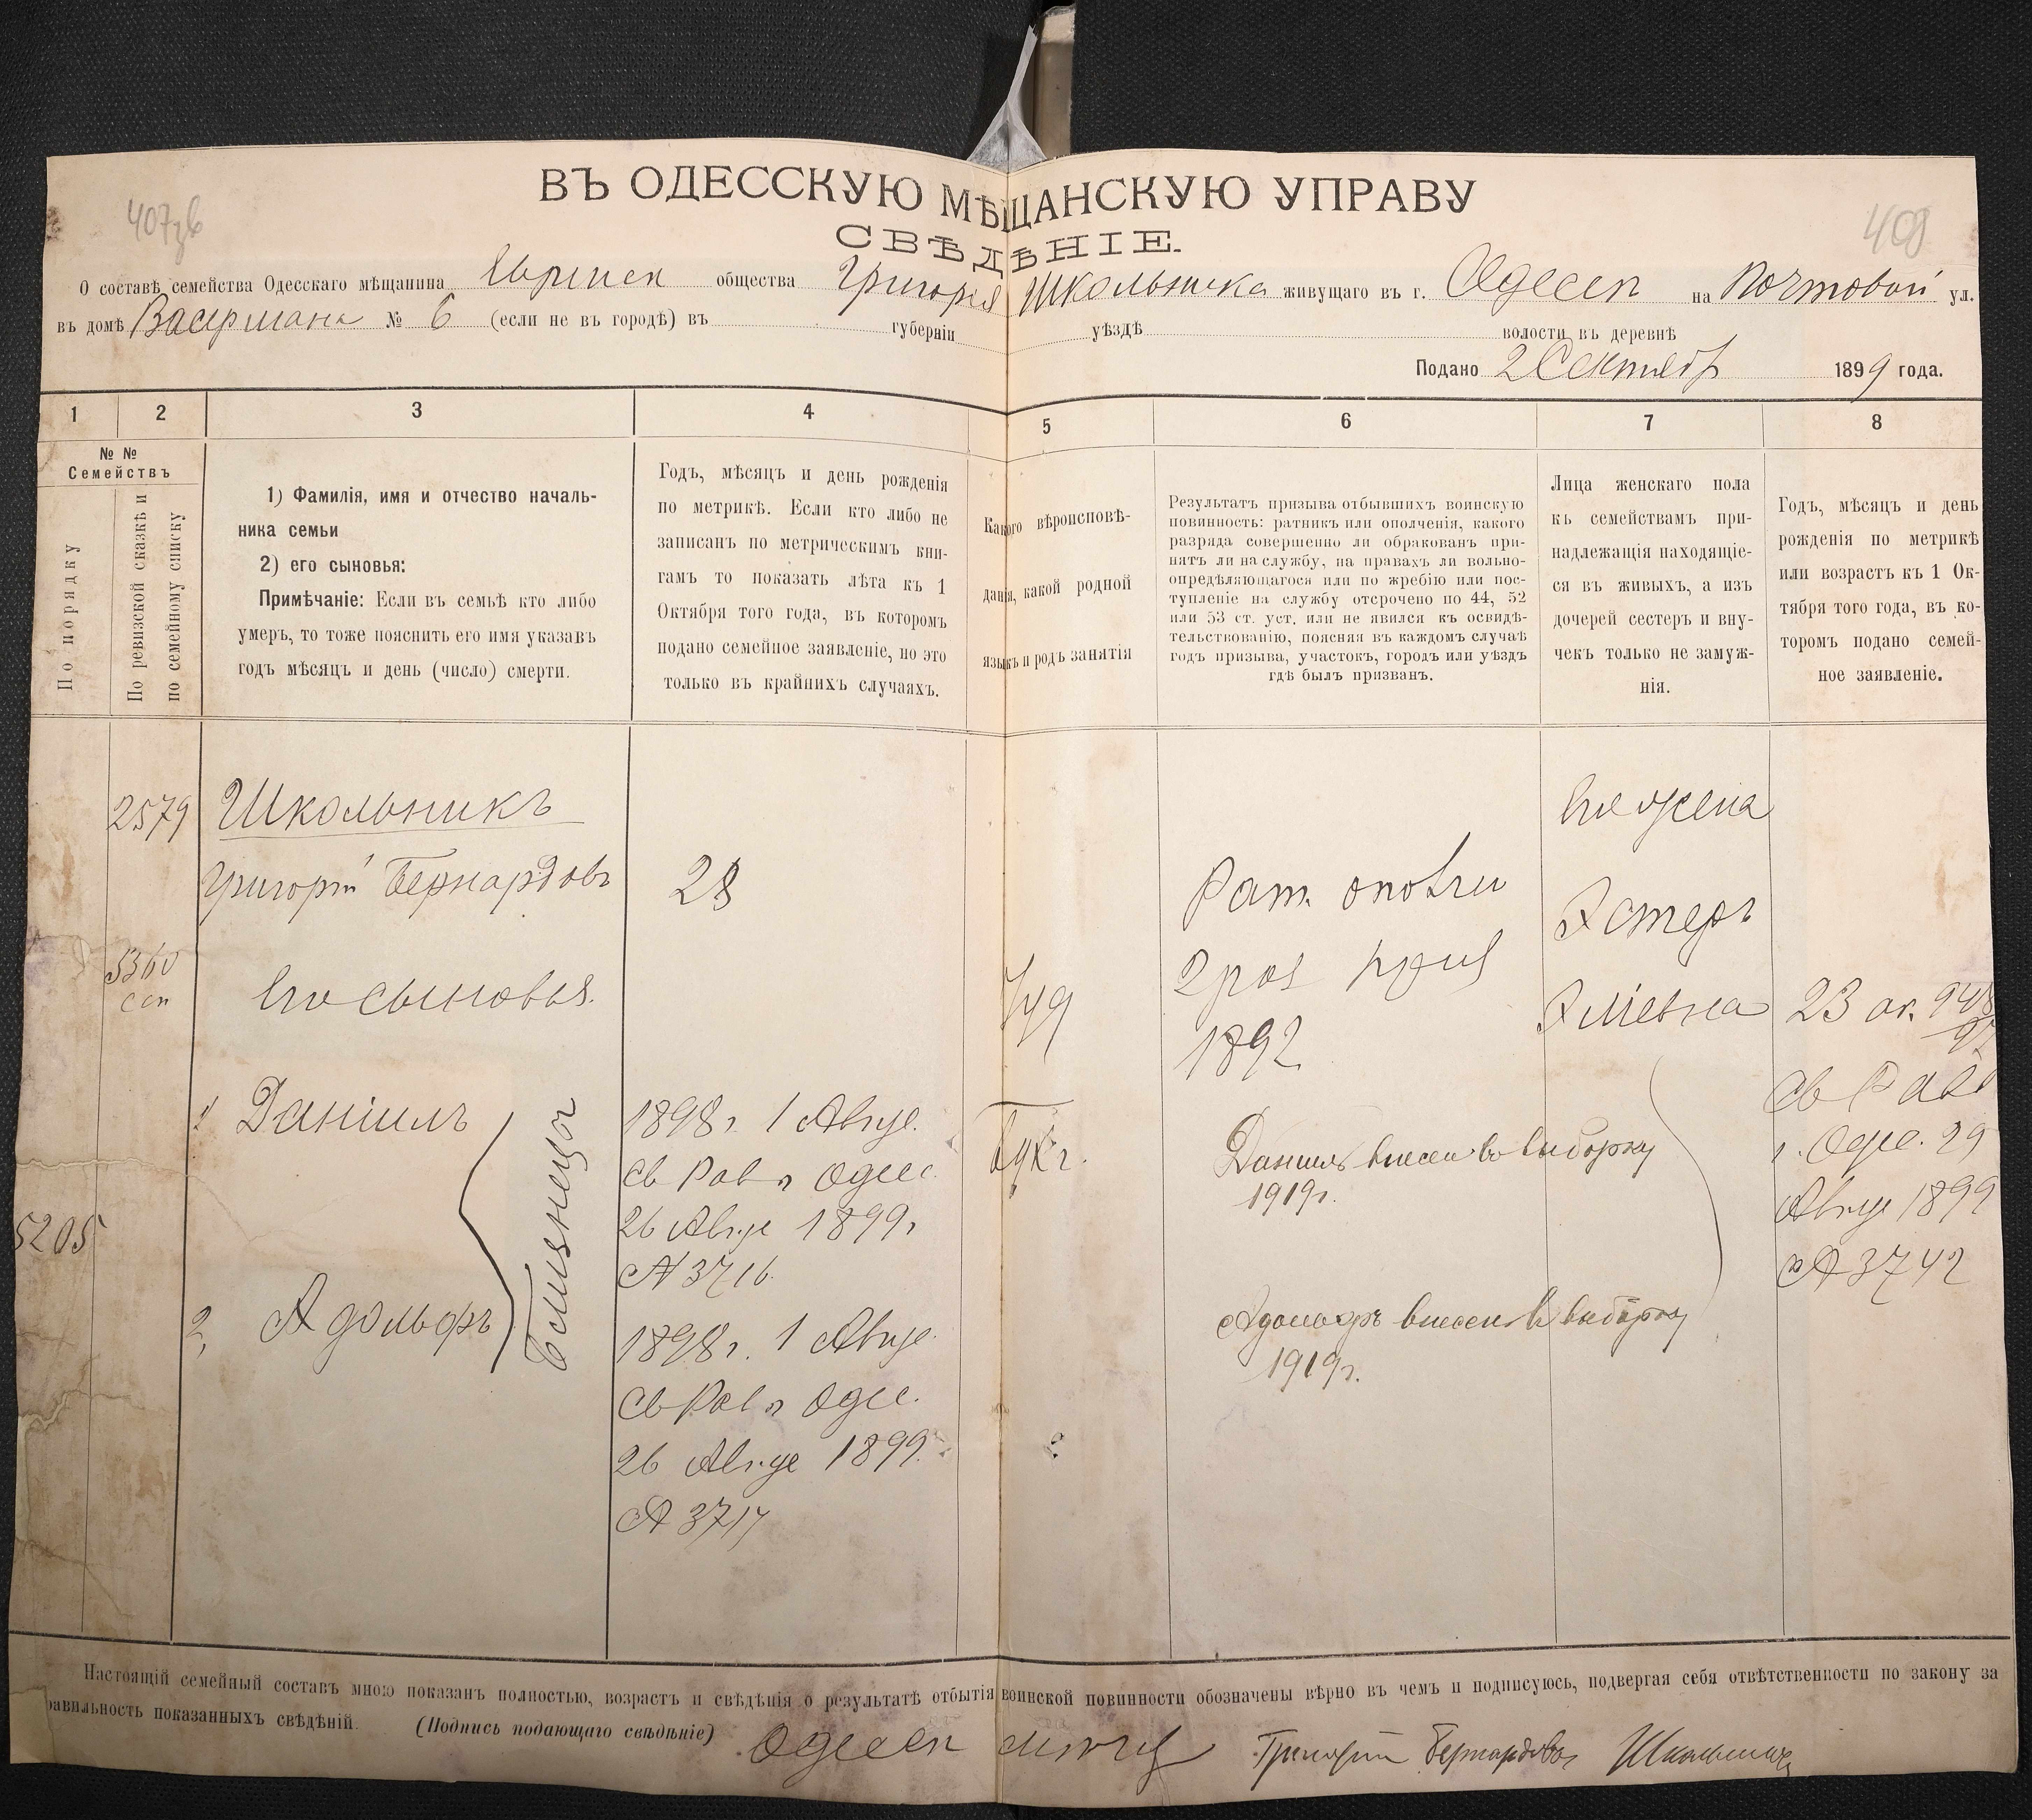 ВЪ ОДЕССКУЮ МѢЩАНСКУЮ УПРАВУ
СВѢДѢНІЕ.
408
О составѣ семейства Одесскаго мѣщанина общества Григорія Школьника живущаго въ г. Одессѣ на Почтовой ул.
въ домѣ Васермана № 6 (если не въ городѣ) въ губерніи уѣздѣ волости въ деревнѣ
Подано 2 Сентябр 1899 года.
1 2 3 4 5 6 7 8
№ №
Семействъ
По порядку
По ревизской сказкѣ и
по семейному списку
1) Фамилія, имя и отчество началь-
ника семьи
2) его сыновья:
Примѣчаніе: Если въ семьѣ кто либо
умеръ, то тоже пояснить его имя указавъ
годъ мѣсяцъ и день (число) смерти.
Годъ, мѣсяцъ и день рожденія
по метрикѣ. Если кто либо не
записанъ по метрическимъ кни-
гамъ то показать лѣта къ 1
Октября того года, въ которомъ
подано семейное заявленіе, но это
только въ крайнихъ случаяхъ.
Какого вѣроисповѣ-
данія, какой родной
языкъ и родъ занятія
Результатъ призыва отбывшихъ воинскую
повинность: ратникъ или ополченія, какого
разряда совершенно ли обракованъ при-
нятъ ли на службу, на правахъ ли вольно-
опредѣляющагося или по жребію или пос-
тупленіе на службу отсрочено по 44, 52
или 53 ст. уст. или не явился къ освидѣ-
тельствованію, поясняя въ каждомъ случаѣ
годъ призыва, участокъ, городъ или уѣздъ
гдѣ былъ призванъ.
Лица женскаго пола
къ семействамъ при-
надлежащія находящіе-
ся въ живыхъ, а изъ
дочерей сестеръ и вну-
чекъ только не замуж-
нія.
Годъ, мѣсяцъ и день
рожденія по метрикѣ
или возрастъ къ 1 Ок-
тября того года, въ ко-
торомъ подано семей-
ное заявленіе.
2579
Школьникъ
Григорій Бернардовъ
28
5360
его сыновья.
Іуд
Рат. опол
2 раз приз
1892
его жена
Эстеръ
23 ок.
1 Даніилъ
1898 г. 1 Авгус.
Св Рав г Одес.
26 Авгус 1899 г
№ 3716.
Близнецы
Бух г.
Даніилъ внесен во выборку
1919 г.
Св Рав
г. Одес. 29
Авгус 1899
№ 3742
5205
2, Адольфъ
1898 г. 1 Авгус.
Св Рав г Одес.
26 Авгус 1899.
№ 3717
Адольфъ внесен в выборку
1919 г.
Настоящій семейный составъ мною показанъ полностью, возрастъ и свѣдѣнія о результатѣ отбытія воинской повинности обозначены вѣрно въ чемъ и подписуюсь, подвергая себя отвѣтственности по закону за
равильность показанныхъ свѣдѣній. (Подпись подающаго свѣдѣніе) Григорій Бернардовъ Школьникъ